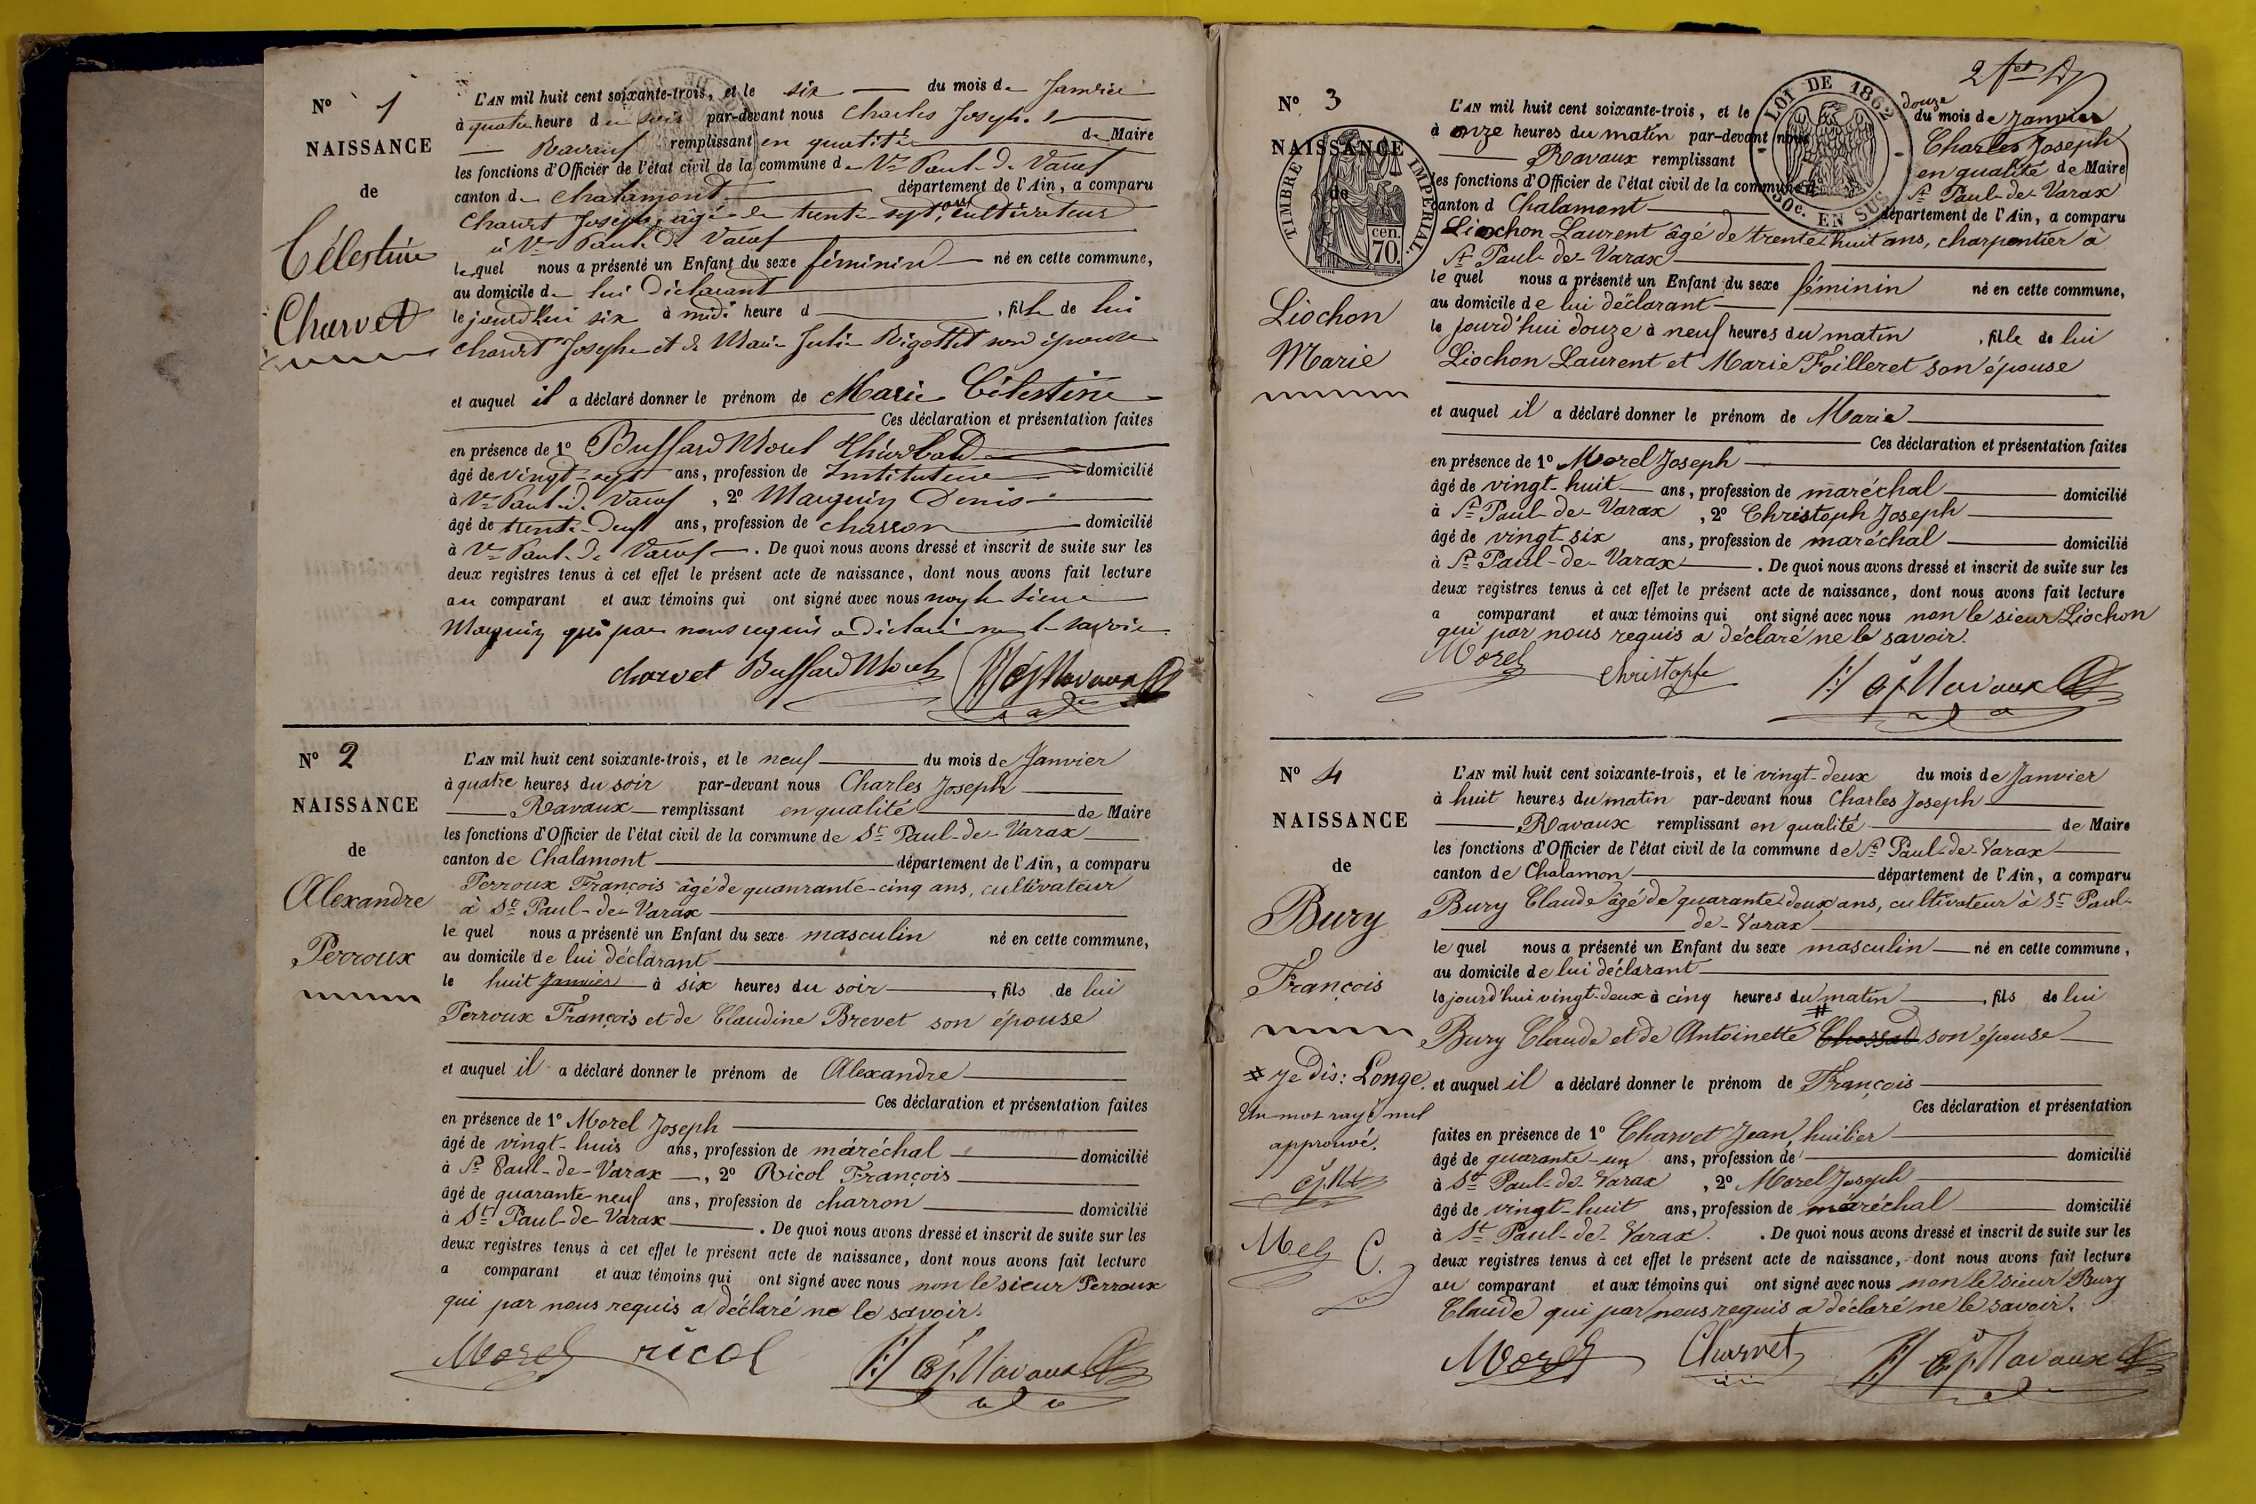 N° 1
NAISSANCE
de
Célestine
Charvet
L'AN mil huit cent soixante-trois, et le six du mois de Janvier
à quatre heure du soir par-devant nous Charles Joseph
Ravaux remplissant en qualité de Maire
les fonctions d'Officier de l'état civil de la commune de St Paul de Varax
canton de Chalamont département de l'Ain, a comparu
Charvet Joseph, âgé de trente-sept ans cultivateur
à St Paul de Varax
le quel nous a présenté un Enfant du sexe féminin né en cette commune,
au domicile de lui déclarant
le jourd'hui six à midi heure d , fille de lui
Charvet Joseph et de Marie Julie Bigottet son épouse
et auquel il a déclaré donner le prénom de Marie Célestine
Ces déclaration et présentation faites
en présence de 1° Buffard Morel
âgé de vingt-sept ans, profession de Instituteur domicilié
à St Paul de Varax , 2° Mauguin Denis
âgé de trente-deux ans, profession de charron domicilié
à St Paul de Varax . De quoi nous avons dressé et inscrit de suite sur les
deux registres tenus à cet effet le présent acte de naissance, dont nous avons fait lecture
au comparant et aux témoins qui ont signé avec nous non le sieur
Mauguin qui par nous requis a déclaré ne le savoir.
Charvet Buffard Morel Ravaux
N° 2
NAISSANCE
de
Alexandre
Perroux
L'AN mil huit cent soixante-trois, et le neuf du mois de Janvier
à quatre heures du soir par-devant nous Charles Joseph
Ravaux remplissant en qualité de Maire
les fonctions d'Officier de l'état civil de la commune de St Paul-de-Varax
canton de Chalamont département de l'Ain, a comparu
Perroux François âgé de quanrante-cinq ans, cultivateur
à St Paul-de-Varax
le quel nous a présenté un Enfant du sexe masculin né en cette commune,
au domicile de lui déclarant
le huit Janvier à six heures du soir , fils de lui
Perroux François et de Claudine Brevet son épouse
et auquel il a déclaré donner le prénom de Alexandre
Ces déclaration et présentation faites
en présence de 1° Morel Joseph
âgé de vingt-huis ans, profession de maréchal domicilié
à St Paul-de-Varax , 2° Ricol François
âgé de quarante neuf ans, profession de charron domicilié
à St Paul-de-Varax . De quoi nous avons dressé et inscrit de suite sur les
deux registres tenus à cet effet le présent acte de naissance, dont nous avons fait lecture
a comparant et aux témoins qui ont signé avec nous non le sieur Perroux
qui par nous requis a déclaré ne le savoir.
Morel ricol Ravaux
N° 3
NAISSANCE
de
TIMBRE IMPÉRIAL.
70. cen.
LOI DE 1862
50c. EN SUS
Liochon
Marie
L'AN mil huit cent soixante-trois, et le douze du mois de Janvier
à onze heures du matin par-devant nous Charles Joseph
Ravaux remplissant en qualité de Maire
les fonctions d'Officier de l'état civil de la commune d St Paul-de-Varax
canton d Chalamont département de l'Ain, a comparu
Liochon Laurent âgé de trente huit ans, charpentier à
St Paul-de-Varax
le quel nous a présenté un Enfant du sexe féminin né en cette commune,
au domicile de lui déclarant
le jourd'hui douze à neuf heures du matin , fille de lui
Liochon Laurent et Marie Foilleret son épouse
et auquel il a déclaré donner le prénom de Marie
Ces déclaration et présentation faites
en présence de 1° Morel Joseph
âgé de vingt-huit ans, profession de maréchal domicilié
à St Paul-de-Varax , 2° Christoph Joseph
âgé de vingt-six ans, profession de maréchal domicilié
à St Paul-de-Varax . De quoi nous avons dressé et inscrit de suite sur les
deux registres tenus à cet effet le présent acte de naissance, dont nous avons fait lecture
a comparant et aux témoins qui ont signé avec nous non le sieur Liochon
qui par nous requis a déclaré ne le savoir.
Morel Christophe Ravaux
N° 4
NAISSANCE
de
Bury
François
# Je dis: Longe.
Un mot rayé nul
approuvé.
L'AN mil huit cent soixante-trois, et le vingt-deux du mois de Janvier
à huit heures du matin par-devant nous Charles Joseph
Ravaux remplissant en qualité de Maire
les fonctions d'Officier de l'état civil de la commune de St Paul-de-Varax
canton de Chalamon département de l'Ain, a comparu
Bury Claude âgé de quarante deux ans, cultivateur à St Paul-
de-Varax
le quel nous a présenté un Enfant du sexe masculin né en cette commune,
au domicile de lui déclarant
le jourd'hui vingt-deux à cinq heures du matin , fils de lui
Bury Claude et de Antoinette # Chossat son épouse
et auquel il a déclaré donner le prénom de François
Ces déclaration et présentation
faites en présence de 1° Charvet Jean, huilier
âgé de quarante-un ans, profession de domicilié
à St Paul-de-Varax , 2° Morel Joseph
âgé de vingt-huit ans, profession de maréchal domicilié
à St Paul-de-Varax. . De quoi nous avons dressé et inscrit de suite sur les
deux registres tenus à cet effet le présent acte de naissance, dont nous avons fait lecture
au comparant et aux témoins qui ont signé avec nous non le sieur Bury
Claude qui par nous requis a déclaré ne le savoir.
Morel Charvet Ravaux